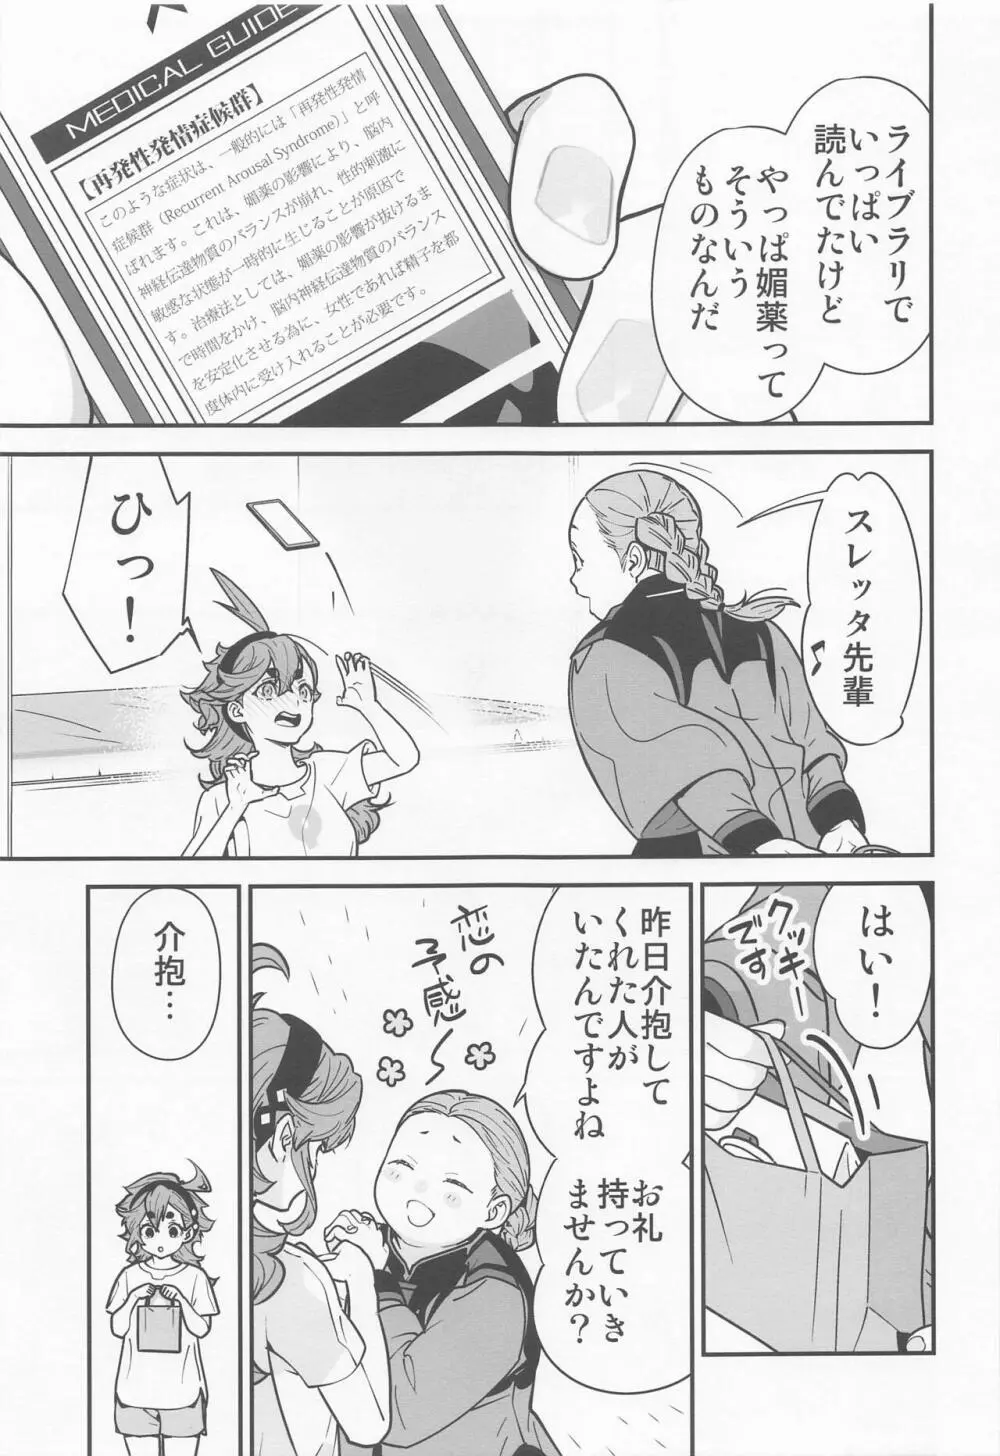 ライブラリで
いっぱい
読んでたけど
やっぱ媚薬って
そういう
ものなんだ
MEDICAL GUIDE
【再発性発情症候群】
このような症状は、一般的には「再発性発情
症候群（Recurrent Arousal Syndrome）」と呼
ばれます。これは、媚薬の影響により、脳内
神経伝達物質のバランスが崩れ、性的刺激に
敏感な状態が一時的に生じることが原因で
す。治療法としては、媚薬の影響が抜けるま
で時間をかけ、脳内神経伝達物質のバランス
を安定化させる為に、女性であれば精子を都
度体内に受け入れることが必要です。
スレッタ先輩♪
ひっ！
はい！
クッキー
です
昨日介抱して
くれた人が
いたんですよね
お礼
持っていき
ませんか？
恋の
予感〜
介抱…